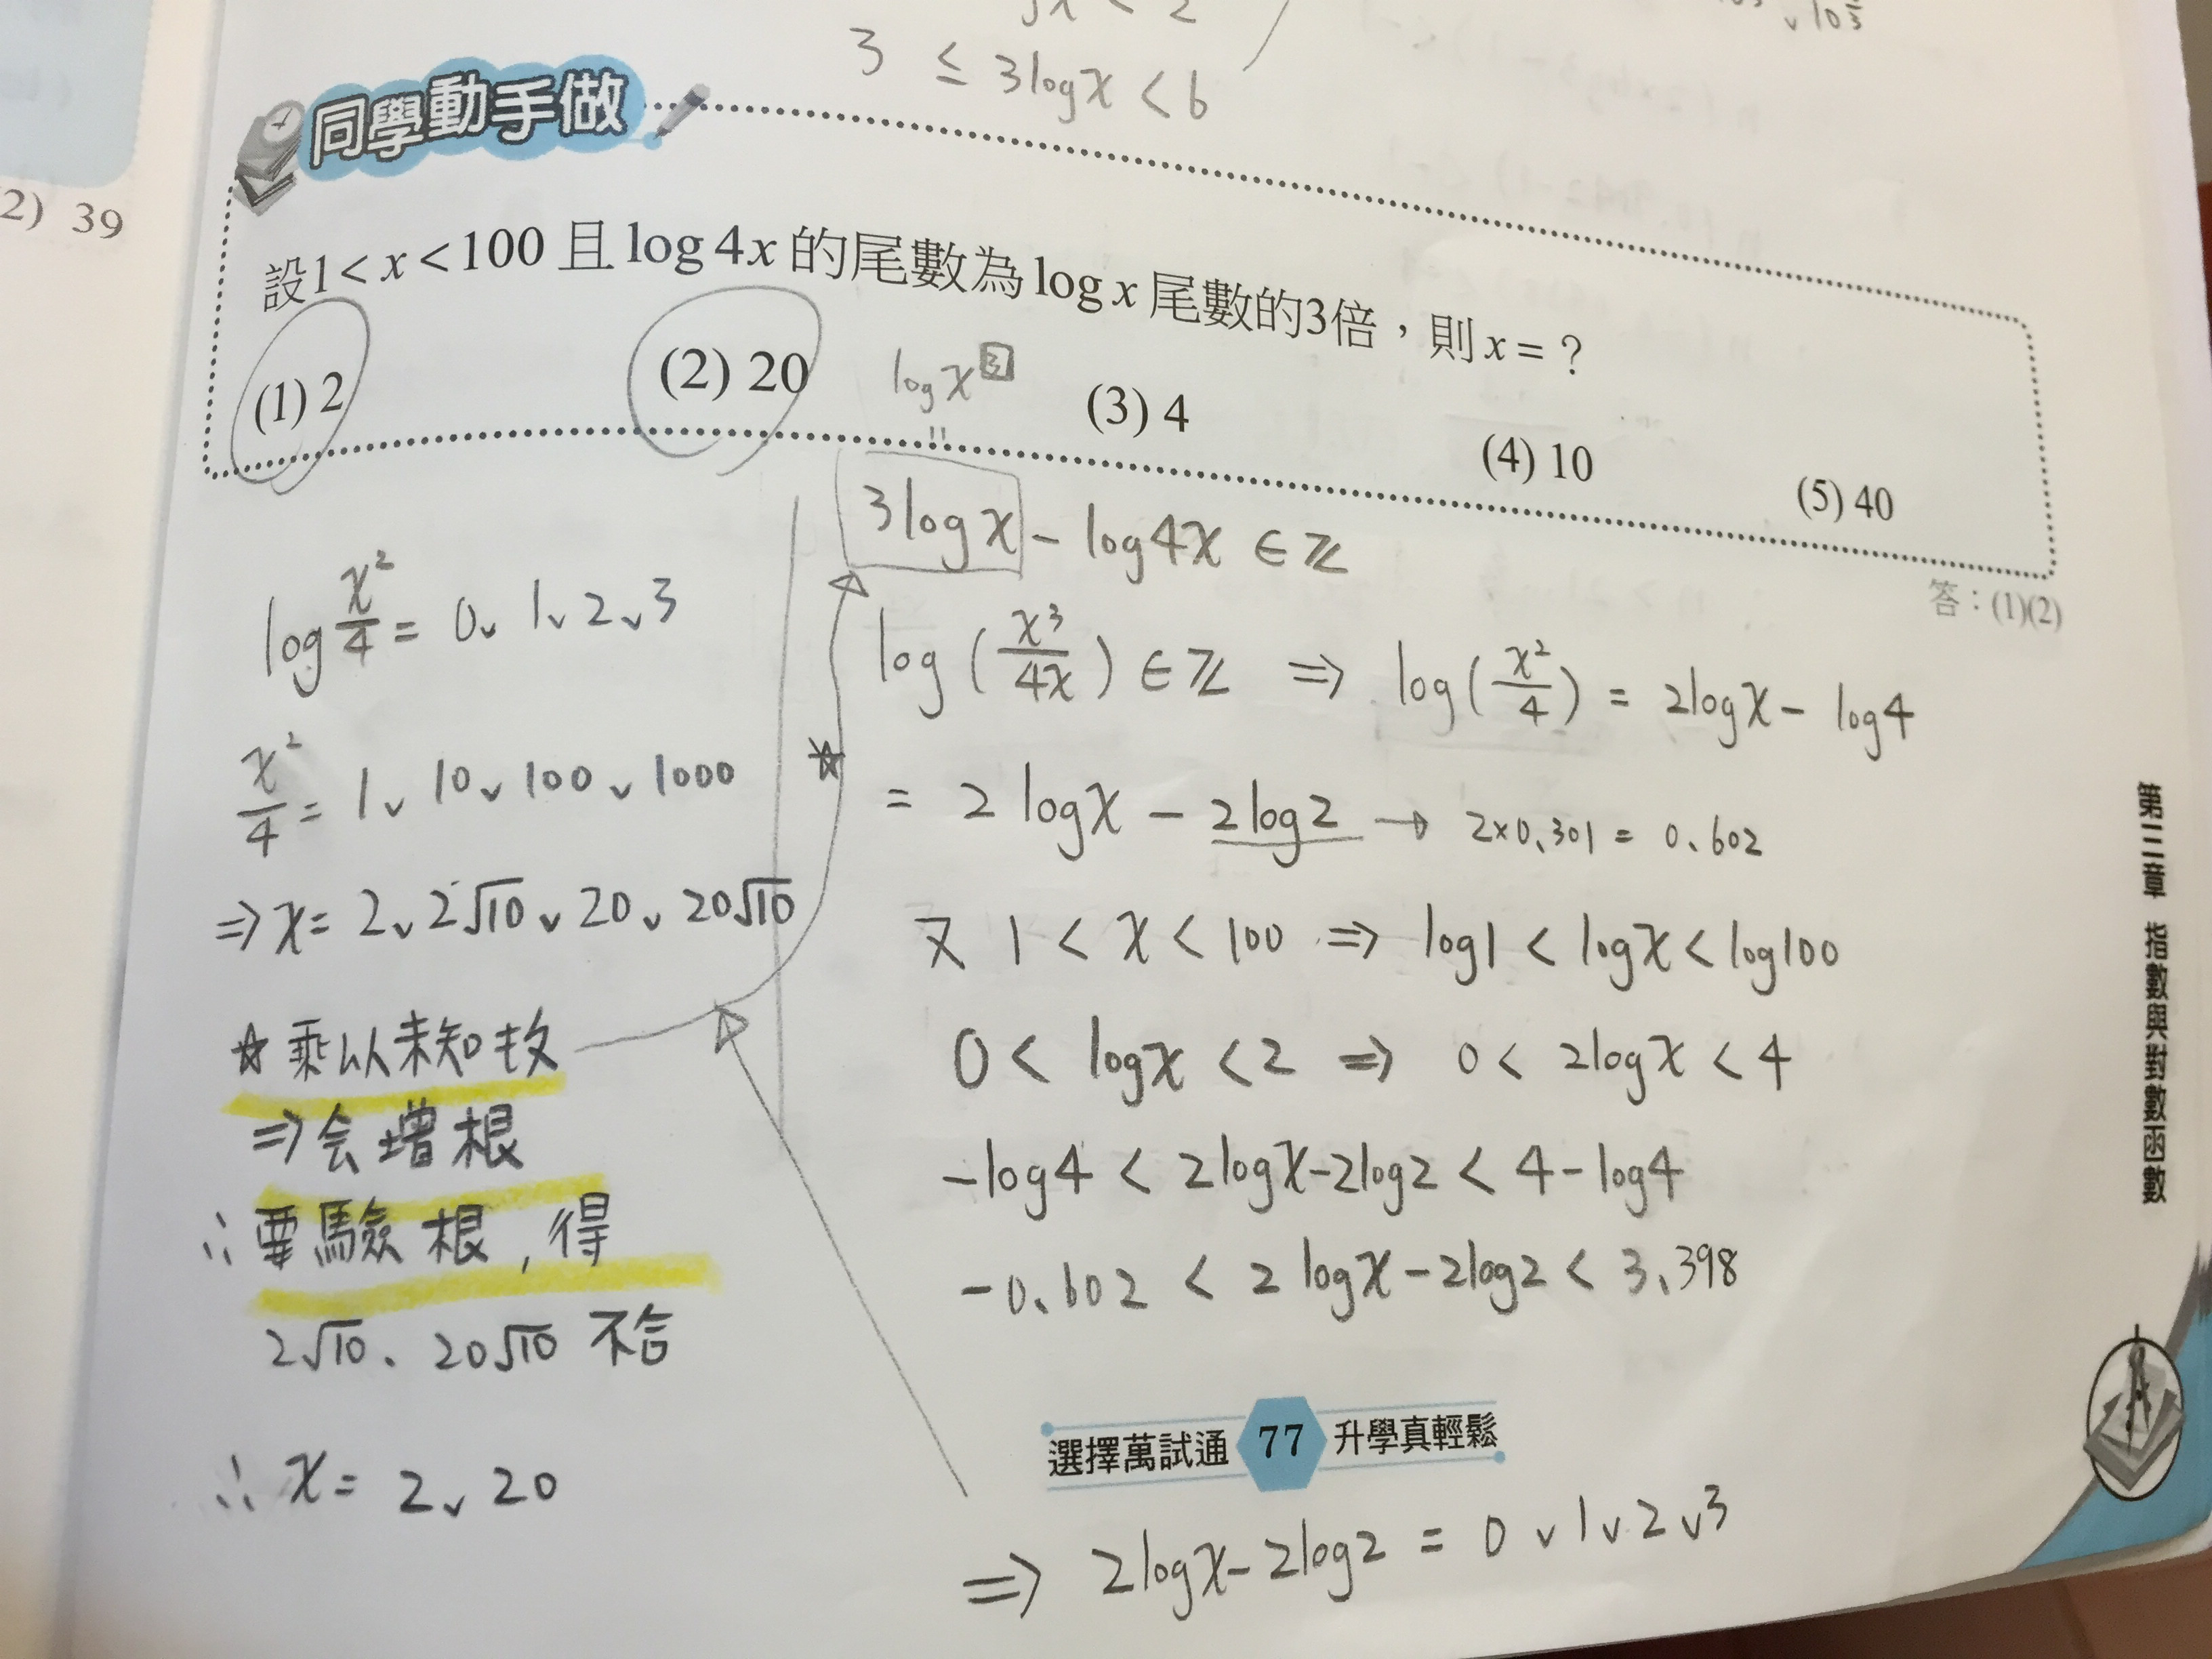 3 ≤ 3logx < 6
2) 39
同學動手做
設1 < x < 100 且 log 4x 的尾數為 log x 尾數的3倍，則 x = ？
(1) 2 (2) 20 (3) 4 (4) 10 (5) 40
logx³
"
答：(1)(2)
3logx - log4x ∈ ℤ
log(x³/4x) ∈ ℤ ⇒ log(x²/4) = 2logx - log4
= 2logx - 2log2 → 2×0.301 = 0.602
又 1 < x < 100 ⇒ log1 < logx < log100
0 < logx < 2 ⇒ 0 < 2logx < 4
-log4 < 2logx-2log2 < 4-log4
-0.602 < 2logx-2log2 < 3.398
⇒ 2logx-2log2 = 0∨1∨2∨3
log x²/4 = 0∨1∨2∨3
x²/4 = 1∨10∨100∨1000
⇒ x = 2∨2√10∨20∨20√10
☆乘以未知数
⇒会增根
∴要驗根，得
2√10、20√10 不合
∴ x = 2∨20
☆
第三章 指數與對數函數
選擇萬試通 77 升學真輕鬆